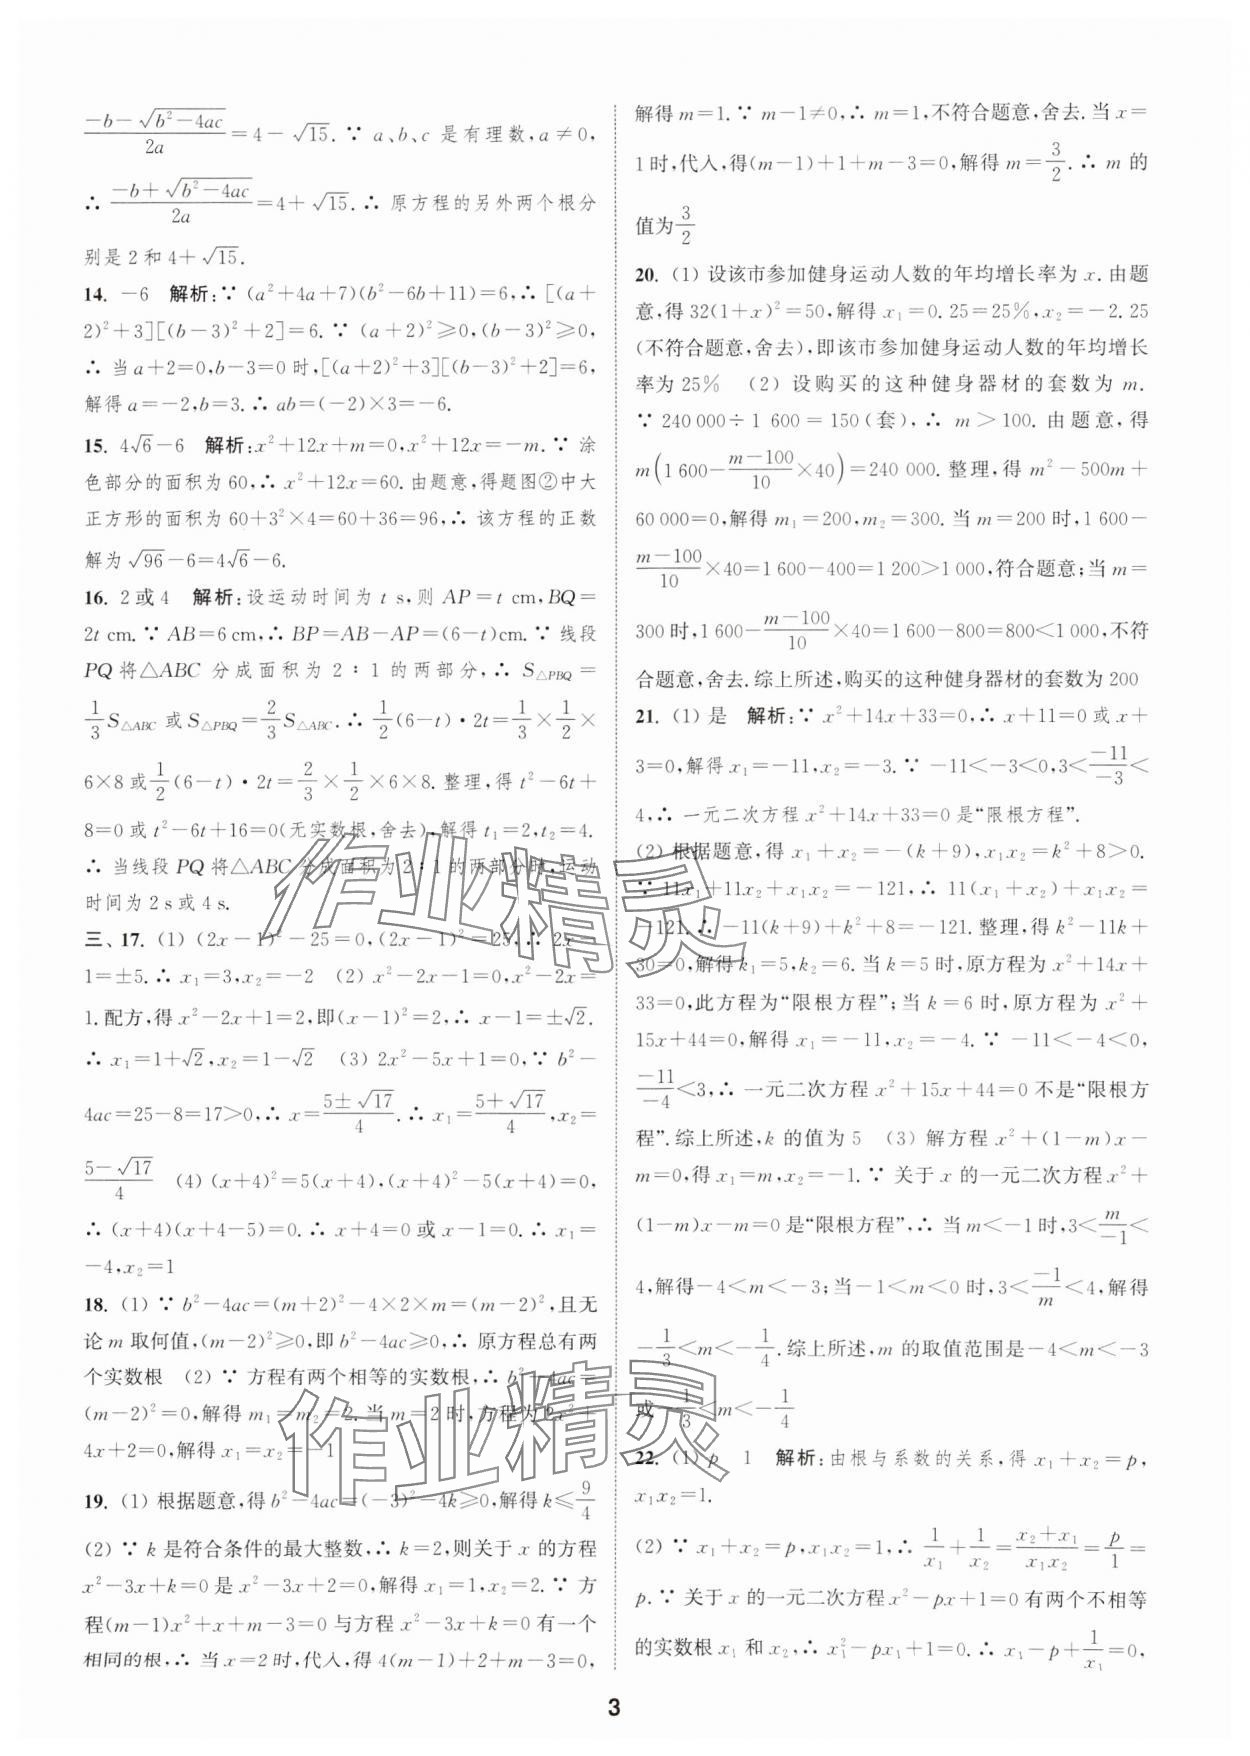 (-b-√(b²-4ac))/2a=4-√15.∵ a、b、c 是有理数,a≠0,
∴ (-b+√(b²-4ac))/2a=4+√15.∴ 原方程的另外两个根分
别是 2 和 4+√15.
14. -6 解析:∵ (a²+4a+7)(b²-6b+11)=6,∴[(a+
2)²+3][(b-3)²+2]=6.∵ (a+2)²≥0,(b-3)²≥0,
∴ 当 a+2=0,b-3=0 时,[(a+2)²+3][(b-3)²+2]=6,
解得 a=-2,b=3.∴ ab=(-2)×3=-6.
15. 4√6-6 解析:x²+12x+m=0,x²+12x=-m.∵ 涂
色部分的面积为 60,∴ x²+12x=60.由题意,得题图②中大
正方形的面积为 60+3²×4=60+36=96,∴ 该方程的正数
解为 √96-6=4√6-6.
16. 2 或 4 解析:设运动时间为 t s,则 AP=t cm,BQ=
2t cm.∵ AB=6 cm,∴ BP=AB-AP=(6-t)cm.∵ 线段
PQ 将△ABC 分成面积为 2∶1 的两部分,∴ S△PBQ=
1/3 S△ABC 或 S△PBQ=2/3 S△ABC.∴ 1/2(6-t)·2t=1/3×1/2×
6×8 或 1/2(6-t)·2t=2/3×1/2×6×8.整理,得 t²-6t+
8=0 或 t²-6t+16=0(无实数根,舍去).解得 t₁=2,t₂=4.
∴ 当线段 PQ 将△ABC 分成面积为 2∶1 的两部分时,运动
时间为 2 s 或 4 s.
三、17. (1) (2x-1)²-25=0,(2x-1)²=25,∴ 2x-
1=±5.∴ x₁=3,x₂=-2 (2) x²-2x-1=0,x²-2x=
1.配方,得 x²-2x+1=2,即(x-1)²=2,∴ x-1=±√2.
∴ x₁=1+√2,x₂=1-√2 (3) 2x²-5x+1=0,∵ b²-
4ac=25-8=17>0,∴ x=(5±√17)/4.∴ x₁=(5+√17)/4,x₂=
(5-√17)/4 (4) (x+4)²=5(x+4),(x+4)²-5(x+4)=0,
∴ (x+4)(x+4-5)=0.∴ x+4=0 或 x-1=0.∴ x₁=
-4,x₂=1
18. (1) ∵ b²-4ac=(m+2)²-4×2×m=(m-2)²,且无
论 m 取何值,(m-2)²≥0,即 b²-4ac≥0,∴ 原方程总有两
个实数根 (2) ∵ 方程有两个相等的实数根,∴ b²-4ac=
(m-2)²=0,解得 m₁=m₂=2.当 m=2 时,方程为 2x²+
4x+2=0,解得 x₁=x₂=-1
19. (1) 根据题意,得 b²-4ac=(-3)²-4k≥0,解得 k≤9/4
(2) ∵ k 是符合条件的最大整数,∴ k=2,则关于 x 的方程
x²-3x+k=0 是 x²-3x+2=0,解得 x₁=1,x₂=2.∵ 方
程(m-1)x²+x+m-3=0 与方程 x²-3x+k=0 有一个
相同的根,∴ 当 x=2 时,代入,得 4(m-1)+2+m-3=0,
解得 m=1.∵ m-1≠0,∴ m=1,不符合题意,舍去.当 x=
1 时,代入,得(m-1)+1+m-3=0,解得 m=3/2.∴ m 的
值为 3/2
20. (1) 设该市参加健身运动人数的年均增长率为 x.由题
意,得 32(1+x)²=50,解得 x₁=0.25=25%,x₂=-2.25
(不符合题意,舍去),即该市参加健身运动人数的年均增长
率为 25% (2) 设购买的这种健身器材的套数为 m.
∵ 240 000÷1 600=150(套),∴ m>100.由题意,得
m(1 600-(m-100)/10×40)=240 000.整理,得 m²-500m+
60 000=0,解得 m₁=200,m₂=300.当 m=200 时,1 600-
(m-100)/10×40=1 600-400=1 200>1 000,符合题意;当 m=
300 时,1 600-(m-100)/10×40=1 600-800=800<1 000,不符
合题意,舍去.综上所述,购买的这种健身器材的套数为 200
21. (1) 是 解析:∵ x²+14x+33=0,∴ x+11=0 或 x+
3=0,解得 x₁=-11,x₂=-3.∵ -11<-3<0,3<-11/-3<
4,∴ 一元二次方程 x²+14x+33=0 是“限根方程”.
(2) 根据题意,得 x₁+x₂=-(k+9),x₁x₂=k²+8>0.
∵ 11x₁+11x₂+x₁x₂=-121,∴ 11(x₁+x₂)+x₁x₂=
-121.∴ -11(k+9)+k²+8=-121.整理,得 k²-11k+
30=0,解得 k₁=5,k₂=6.当 k=5 时,原方程为 x²+14x+
33=0,此方程为“限根方程”;当 k=6 时,原方程为 x²+
15x+44=0,解得 x₁=-11,x₂=-4.∵ -11<-4<0,
-11/-4<3,∴ 一元二次方程 x²+15x+44=0 不是“限根方
程”.综上所述,k 的值为 5 (3) 解方程 x²+(1-m)x-
m=0,得 x₁=m,x₂=-1.∵ 关于 x 的一元二次方程 x²+
(1-m)x-m=0 是“限根方程”,∴ 当 m<-1 时,3<m/-1<
4,解得-4<m<-3;当-1<m<0 时,3<-1/m<4,解得
-1/3<m<-1/4.综上所述,m 的取值范围是-4<m<-3
或-1/3<m<-1/4
22. (1) p 1 解析:由根与系数的关系,得 x₁+x₂=p,
x₁x₂=1.
(2) ∵ x₁+x₂=p,x₁x₂=1,∴ 1/x₁+1/x₂=(x₂+x₁)/x₁x₂=p/1=
p.∵ 关于 x 的一元二次方程 x²-px+1=0 有两个不相等
的实数根 x₁ 和 x₂,∴ x₁²-px₁+1=0.∴ x₁-p+1/x₁=0,
3
作业精灵
作业精灵